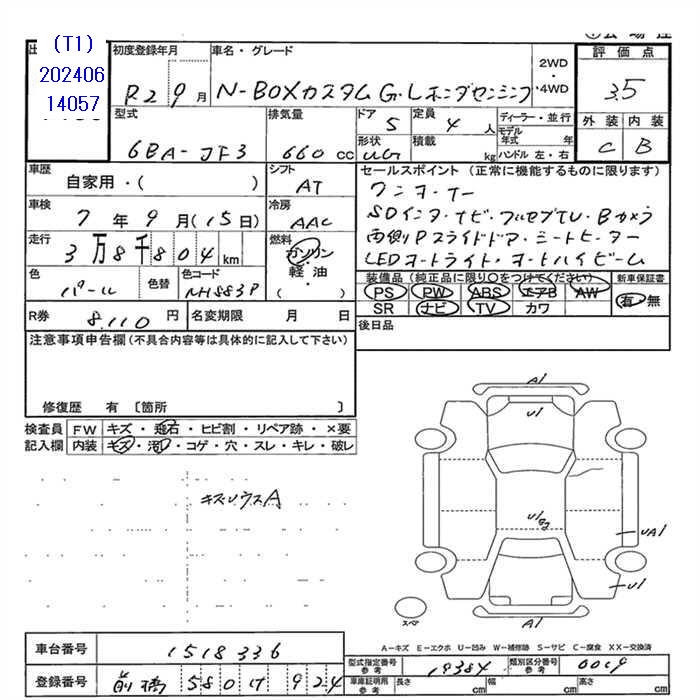 (T1)
202406
14057
初度登録年月
車名・グレード
R2 9月
N-BOXカスタム G・Lホンダセンシング
2WD
・4WD
評価点
3.5
型式
排気量
ドア
定員
ディーラー・並行
6BA-JF3
660 CC
5
4人
モデル年式 年
形状
積載
UG
kg
ハンドル 左・右
外装
内装
C
B
車歴
自家用・( )
シフト
AT
セールスポイント (正常に機能するものに限ります)
ワンオーナー
SDインターナビ・フルセグTV・Bカメラ
両側Pスライドドア・シートヒーター
LEDオートライト・オートハイビーム
車検
7年9月(15日)
冷房
AAC
走行
3万8千804km
燃料
ガソリン
・
軽・油
( )
色
パール
色替
色コード
NH883P
装備品 (純正品に限り〇をつけてください)
新車保証書
PS PW ABS エアB AW
SR ナビ TV カワ
有・無
R券 8,110円
名変期限 月 日
後日品
注意事項申告欄(不具合内容等は具体的に記入して下さい)
修復歴 有 〔箇所 〕
検査員
記入欄
FW キズ・飛石・ヒビ割・リペア跡・×要
内装 キズ・汚レ・コゲ・穴・スレ・キレ・破レ
キズUウスA
A1
U1
U1
UA1
U1
A1
スペア
A-キズ E-エクボ U-凹み W-補修跡 S-サビ C-腐食 XX-交換済
車台番号
1518336
登録番号
前橋 580 け 924
型式指定番号
参考
19384
類別区分番号
参考
0019
車庫証明用
参考
長さ cm
幅 cm
高さ cm